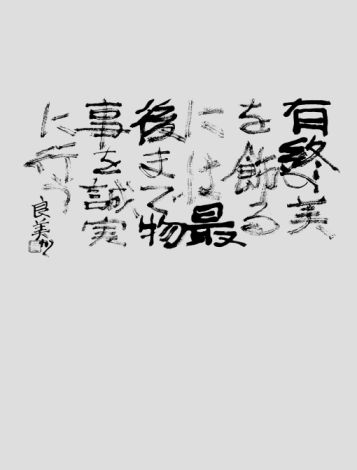 有終の美
を飾る
には最
後まで物
事を誠実
に行う
良美